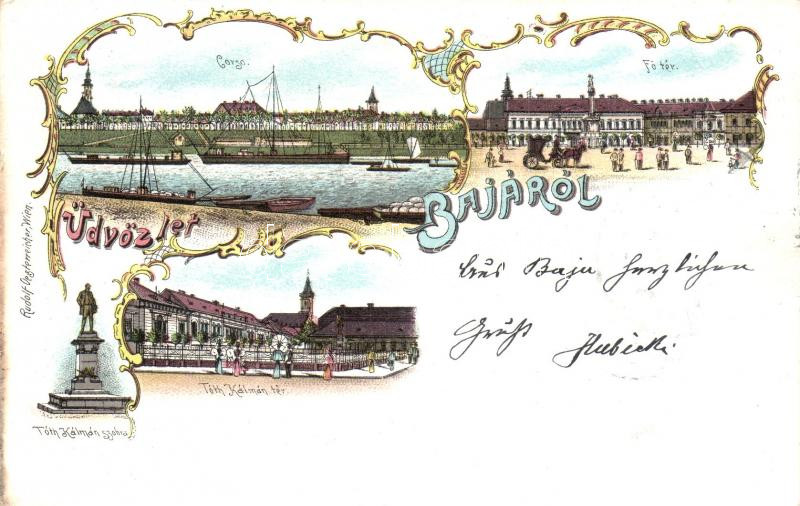 Corso.
Fő tér.
Üdvözlet
BAJÁRÓL
Aus Baja herzlichen
Gruß Hubicki
Tóth Kálmán tér.
Tóth Kálmán szobra